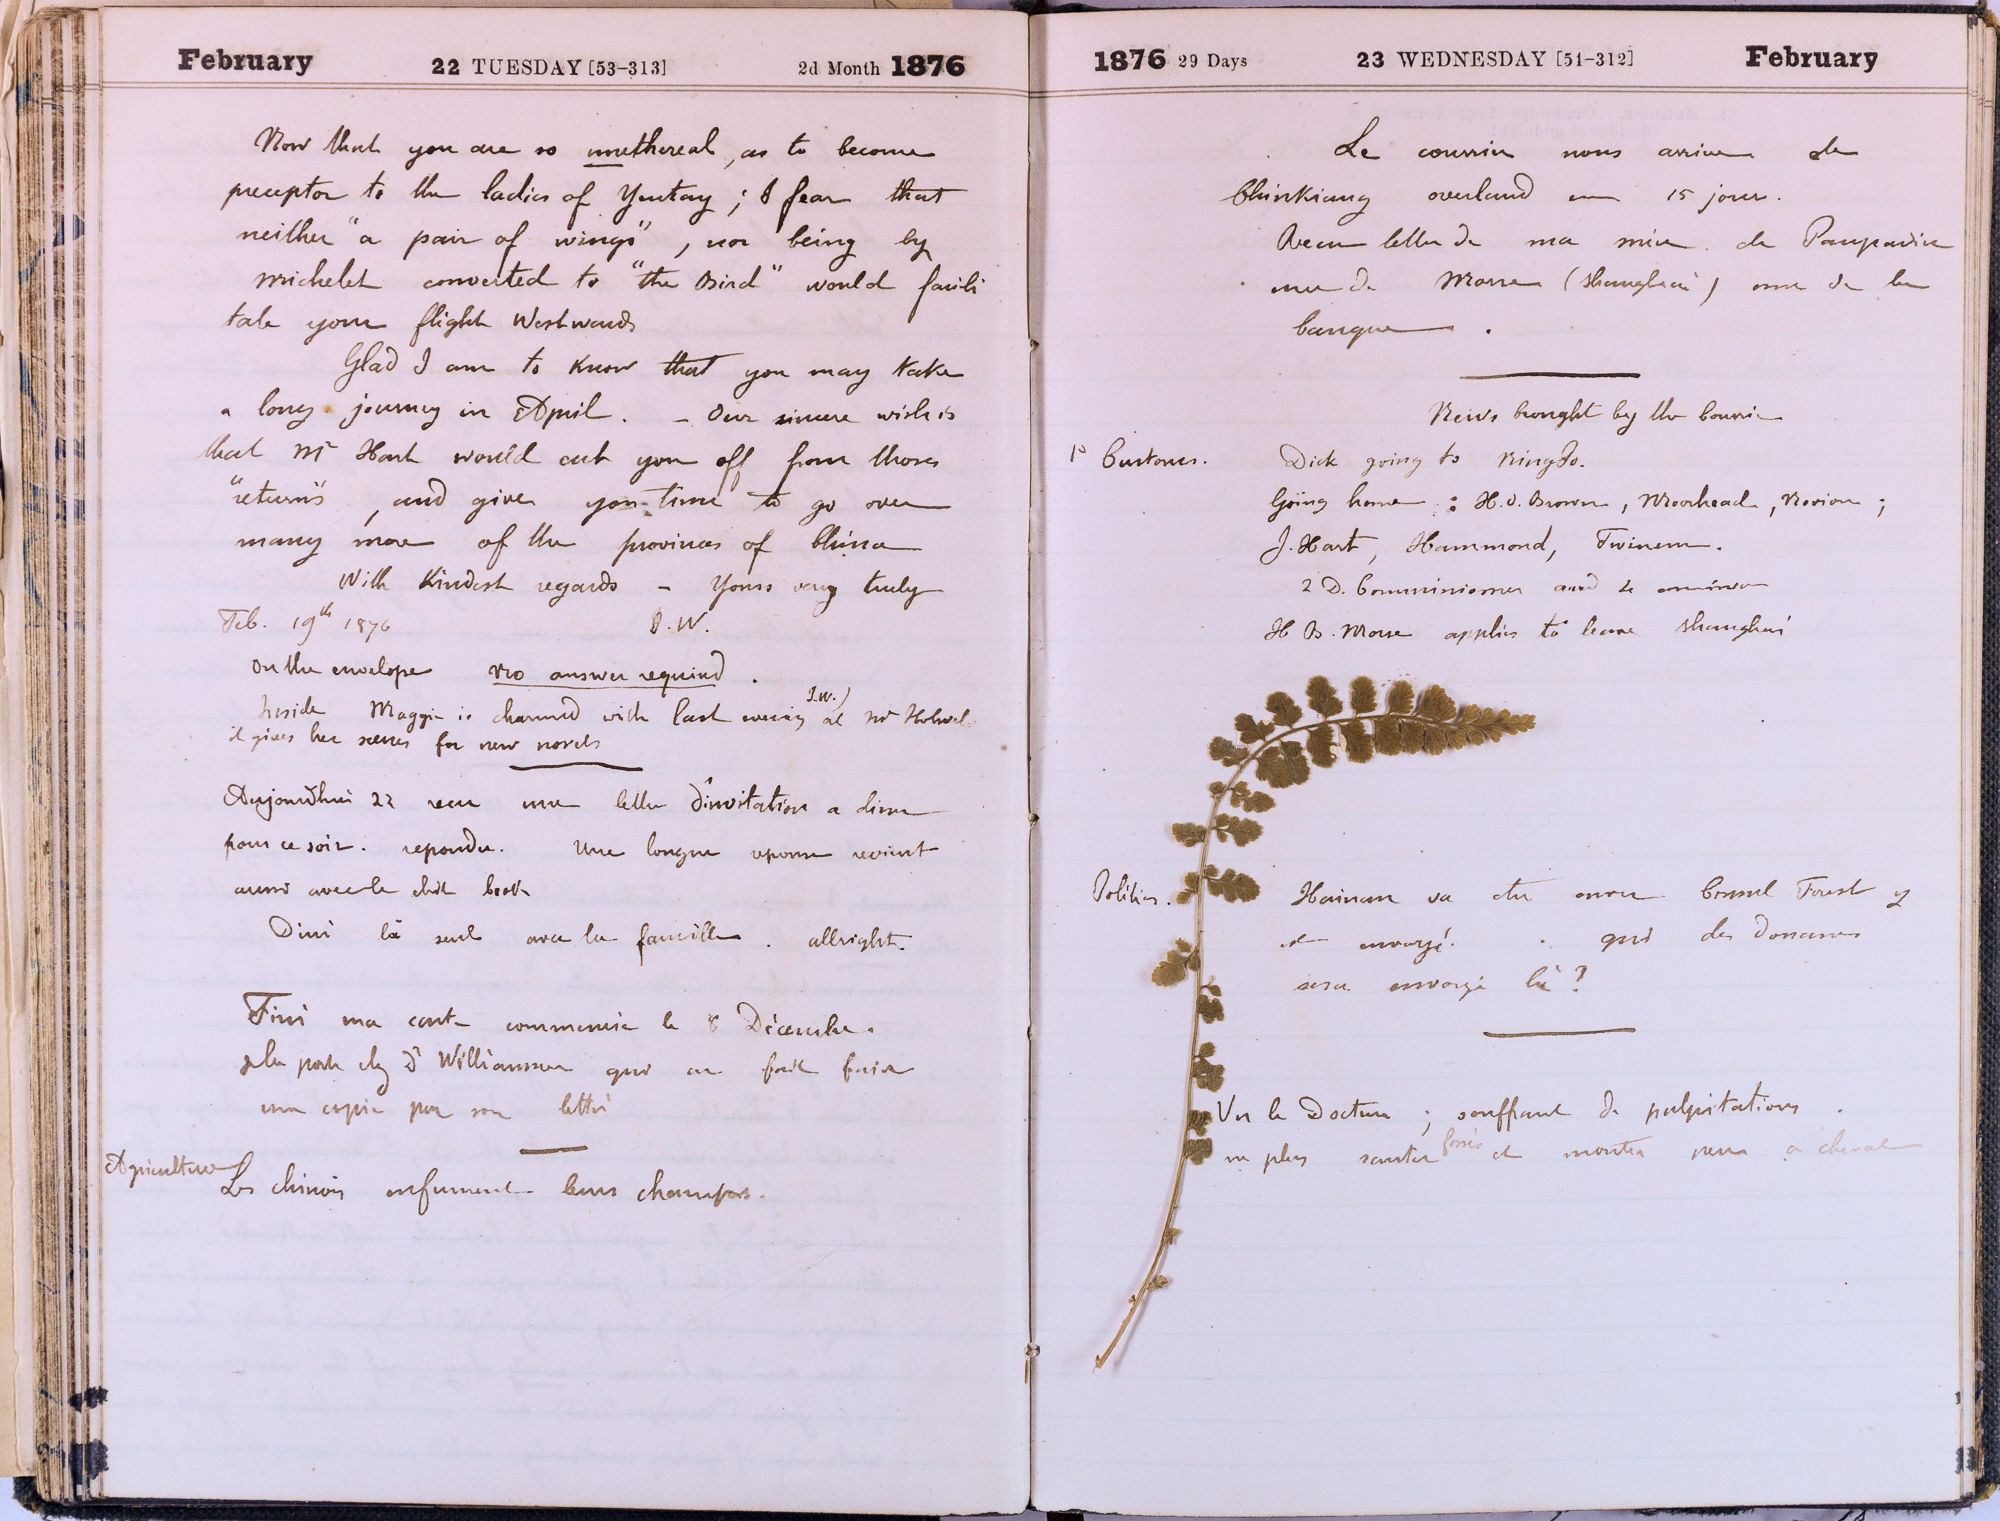 February 22 TUESDAY [53-313] 2d Month 1876
Now that you are so unethereal, as to become
preceptor to the ladies of Yentay; I fear that
neither "a pair of wings", nor being by
Michelet converted to "the Bird" would facili
tate your flight Westwards
Glad I am to know that you may take
a long journey in April. - Our sincere wish is
that Mr Hart would cut you off from those
"returns", and give you time to go over
many more of the provinces of China
With kindest regards - Yours very truly
Feb. 19th 1876 I.W.
On the envelope No answer required.
Inside Maggie is charmed with last evening at Mr Holwel
I.W.)
it gives her scenes for new novels
Aujourd'hui 22 recu une lettre d'invitation a diner
pour ce soir. repondu. Une longue reponse revient
aussi avec le chit book
Dine là seul avec la famille. allright.
Fini ma carte commencée le 8 Décembre.
la porte chez Dr Williamson qui en fait faire
une copie par son lettré
Agriculture
Les chinois enfument leurs champs.
1876 29 Days 23 WEDNESDAY [54-312] February
Le courrier nous arrive de
Chinkiang overland en 15 jours.
Recu lettre de ma mère. de
une de Morse (Shanghai) une de la
banque.
News brought by the courrier
1º Customs. Dick going to Ningpo.
Going home: H.O. Brown, Moorhead, Novion;
J. Hart, Hammond, Twinem.
2 D. Commissioner and 4
H B. Morse applies to leave Shanghai
Politics. Hainan va être ouvert Consul Forest y
est envoyé. qui des Douanes
sera envoyé là?
Vu le Docteur; souffrant de palpitations.
ne plus sauter fossés et monter peu a cheval